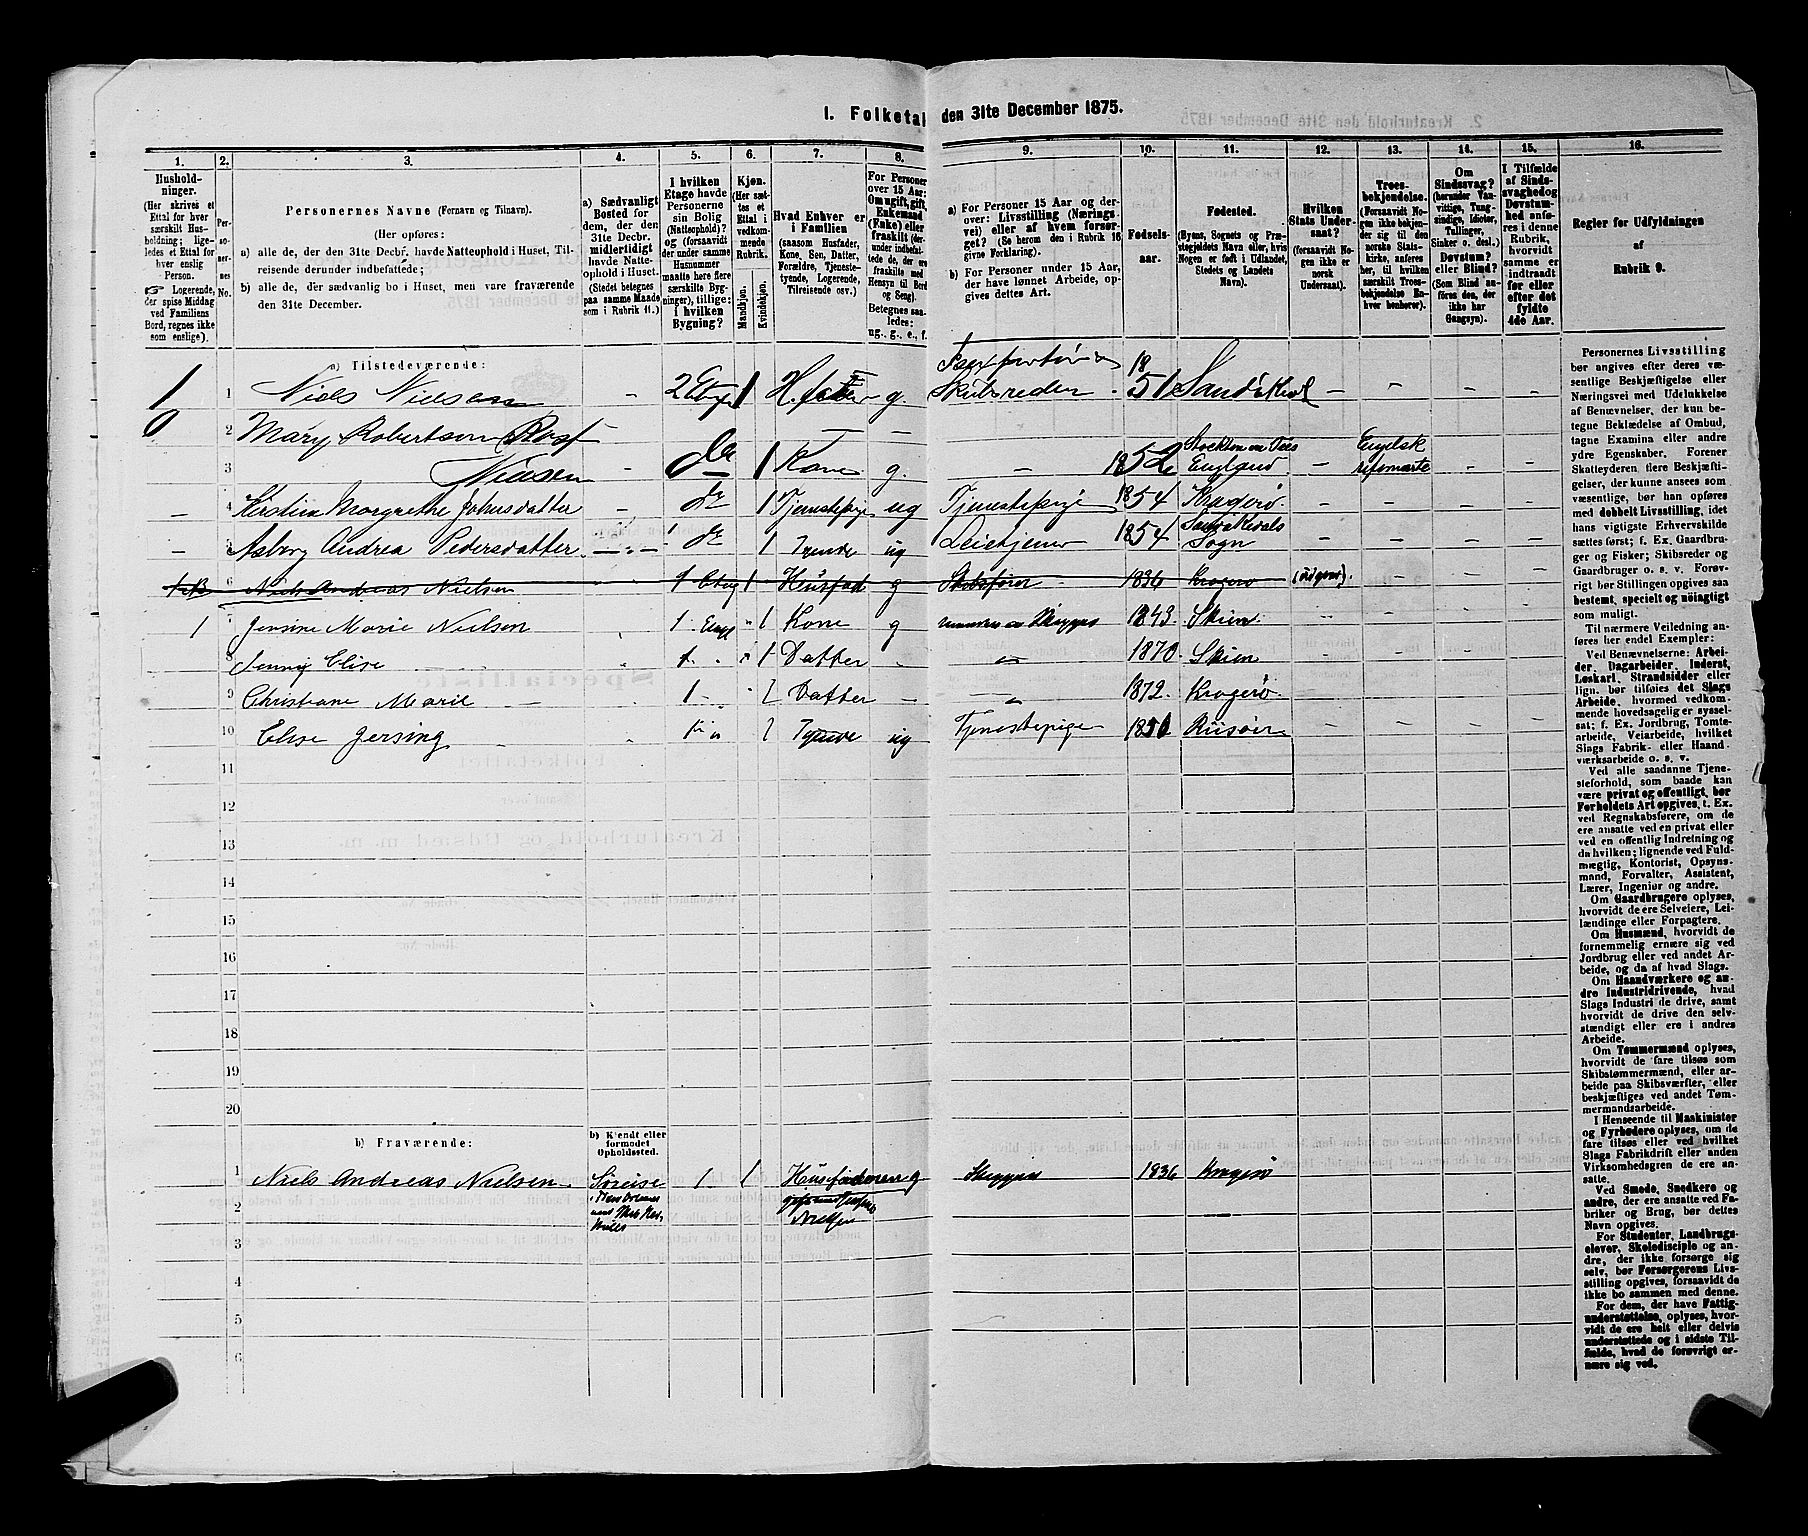 I. Folketal den 31te December 1875.
2. Kreaturhold den 31te December 1875
1. 2. 3. 4. 5. 6. 7. 8. 9. 10. 11. 12. 13. 14. 15. 16.
Husholdninger.
(Her skrives et
Ettal for hver
særskilt Husholdning; ligeledes et Ettal for
hver enslig
Person.
☞ Logerende,
der spise Middag
ved Familiens
Bord, regnes ikke
som enslige).
Personernes No.
Personernes Navne (Fornavn og Tilnavn).
(Her opføres:
a) alle de, der den 31te Decbr. havde Natteophold i Huset, Tilreisende derunder indbefattede;
b) alle de, der sædvanlig bo i Huset, men vare fraværende
den 31te December.
a) Sædvanligt
Bosted for
dem, der den
31te Decbr.
midlertidigt
havde Natteophold i Huset.
(Stedet betegnes
paa samme Maade
som i Rubrik 11.)
I hvilken
Etage havde
Personerne
sin Bolig
(Natteophold)?
og (forsaavidt
der under samme
Husnummer
maatte høre flere
særskilte Bygninger), tillige:
i hvilken
Bygning?
Kjøn.
(Her sættes et
Ettal i
vedkommende
Rubrik.
Mandkjøn.
Kvindekjøn.
Hvad Enhver er
i Familien
(saasom Husfader,
Kone, Søn, Datter,
Forældre, Tjenestetyende, Logerende,
Tilreisende osv.)
For Personer
over 15 Aar:
Om ugift, gift,
Enkemand
(Enke) eller
fraskilt (derunder indbefattede de, der ere
fraskilte med
Hensyn til Bord
og Seng).
Betegnes saaledes:
ug., g., e., f.
a) For Personer 15 Aar og derover: Livsstilling (Næringsvei) eller af hvem forsørget? (Se herom den i Rubrik 16
givne Forklaring).
b) For Personer under 15 Aar,
der have lønnet Arbeide, opgives dettes Art.
Fødselsaar.
Fødested.
(Byens, Sognets og Præstegjeldets Navn eller, hvis
Nogen er født i Udlandet,
Stedets og Landets
Navn).
Hvilken
Stats Undersaat?
(forsaavidt Nogen ikke er
norsk
Undersaat).
Troesbekjendelse.
(Forsaavidt Nogen ikke bekjender sig til den
norske Statskirke, anføres
her, til hvilken
særskilt Troesbekjendelse Enhver henhører).
Om
Sindssvag?
(herunder Vanvittige, Tungsindige, Idioter,
Tullinger,
Sinker o. desl.)
Døvstum?
eller Blind?
(Som Blind anføres den, der
ikke har
Gangsyn).
I Tilfælde
af Sindssvaghed og
Døvstumhed anføres i denne
Rubrik,
hvorvidt
samme er
indtraadt
før eller
efter det
fyldte
4de Aar.
Regler for Udfyldningen
af
Rubrik 9.
a) Tilstedeværende:
1 1 Niels Nielsen - 2 Etage 1 H.fader g. Skibsreder 1851 Sandøkedal - - - -
0 2 Mary Robertson Rost
3 Nielsen - do 1 Kone g. - 1852 Stockton on Tees England - Engelsk reformerte - -
- 4 Kirstin Margrethe Johnsdatter - do 1 Tjenestepige ug Tjenestepige 1854 Kragerø - - - -
- 5 Asborg Andrea Pedersdatter - do 1 Tyende ug 1854 Sandøkedals Sogn - - - -
6 Niels Andreas Nielsen 1 Etag 1 Husfad g Skibsfører 1836 Kragerø
1 7 Jensine Marie Nielsen 1 Etage 1 Kone g 1843. Skien
8 Jenny Elise 1 1 Datter - 1870. Skien
9 Christiane Marie 1 1 Datter - 1872. Kragerø
10 Elise Jersing 1 1 Tyende ug Tjenestepige 1850 Riisøer - - - -
11
12
13
14
15
16
17
18
19
20
b) Fraværende:
b) Kjendt eller
formodet
Opholdssted.
1 Niels Andreas Nielsen 1 1 Husfader g 1836 Kragerø
2
3
4
5
6
Personernes Livsstilling
bør angives efter deres væsentlige Beskjæftigelse eller
Næringsvei med Udelukkelse
af Benævnelser, der kun betegne Beklædelse af Ombud,
tagne Examina eller andre
ydre Egenskaber. Forener
Skatteyderen flere Beskjæftigelser, der kunne ansees som
væsentlige, bør han opføres
med dobbelt Livsstilling, idet
hans vigtigste Erhvervskilde
sættes først; f. Ex. Gaardbruger og Fisker; Skibsreder og
Gaardbruger o. s. v. Forøvrigt bør Stillingen opgives saa
bestemt, specielt og nøiagtigt
som muligt.
Til nærmere Veiledning anføres her endel Exempler:
Ved Benævnelserne: Arbeider, Dagarbeider, Inderst,
Løskarl, Strandsidder eller
lign. bør tilføies det Slags
Arbeide, hvormed vedkommende hovedsagelig er sysselsat; f. Ex. Jordbrug, Tomtearbeide, Veiarbeide, hvilket
Slags Fabrik- eller Haandværksarbeide o. s. v.
Ved alle saadanne Tjenesteforhold, som baade kan
være privat og offentligt, bør
Forholdets Art opgives, t. Ex.
ved Regnskabsførere, om de
ere ansatte ved en privat eller
ved en offentlig Indretning og
da hvilken; lignende ved Fuldmægtig, Kontorist, Opsynsmand, Forvalter, Assistent,
Lærer, Ingeniør og andre.
Om Gaardbrugere oplyses,
hvorvidt de ere Selveiere, Leilændinge eller Forpagtere.
Om Husmænd, hvorvidt de
fornemmelig ernære sig ved
Jordbrug eller ved andet Arbeide, og da af hvad Slags.
Om Haandværkere og andre Industridrivende, hvad
Slags Industri de drive, samt
hvorvidt de drive den selvstændigt eller ere i andres
Arbeide.
Om Tømmermænd oplyses,
hvorvidt de fare tilsøs som
Skibstømmermænd, eller arbeide paa Skibsværfter, eller
beskjæftiges ved andet Tømmermandsarbeide.
I Henseende til Maskinister
og Fyrbødere oplyses, om de
fare tilsøs eller ved hvilket
Slags Fabrikdrift eller anden
Virksomhedsgren de ere ansatte.
Ved Smede, Snedkere og
andre, der ere ansatte ved Fabriker og Brug, bør dettes
Navn opgives.
For Studenter, Landbrugselever, Skoledisciple og andre, der ikke forsørge sig
selv, bør Forsørgerens Livsstilling opgives, forsaavidt de
ikke bo sammen med denne.
For dem, der have Fattigunderstøttelse, oplyses, hvorvidt de ere helt eller delvis
understøttede og i sidste Tilfælde, hvad de forøvrigt ernære sig ved.